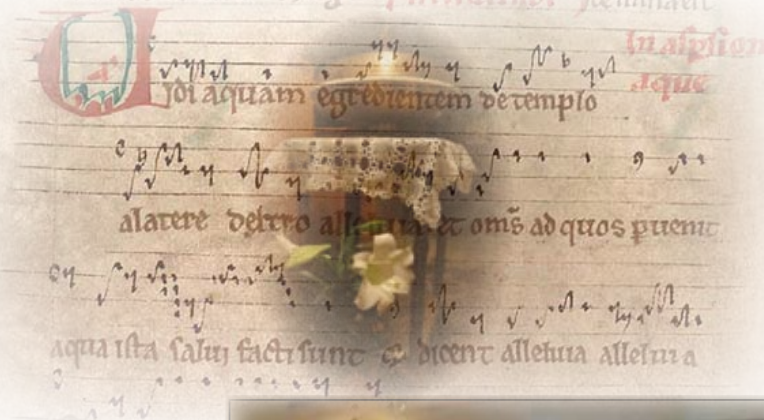 In aspsion
aque
Uidi aquam egredientem de templo
a latere dextro alleluia et om̄s ad quos ꝑuenit
aqua ista salui facti sunt & dicent alleluia alleluia